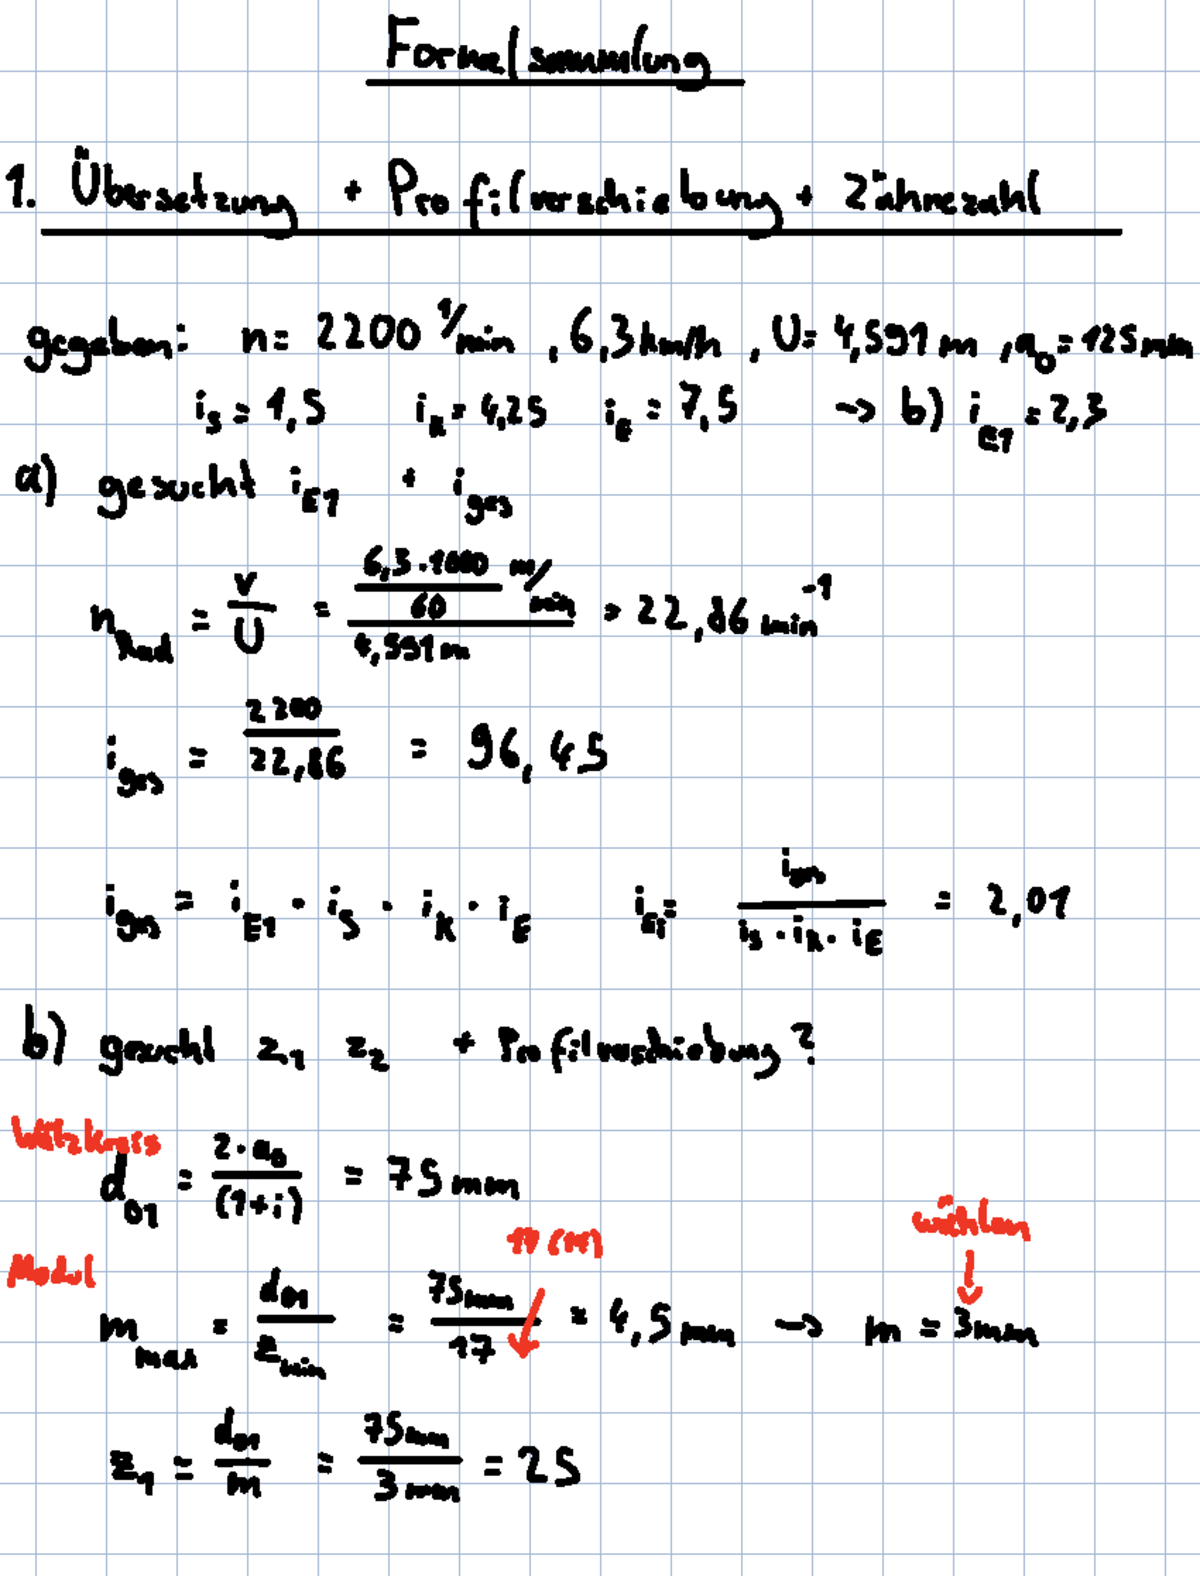 Formelsammlung
1. Übersetzung + Profilverschiebung + Zähnezahl
gegeben: n = 2200 1/min , 6,3 km/h , U = 4,591 m , a0 = 125 mm
is = 1,5 iK = 4,25 iE = 7,5 -> b) iE1 = 2,3
a) gesucht iE1 + iges
nRad = v/U = (6,3 · 1000 / 60 m/min) / 4,591 m = 22,86 min^-1
iges = 2200 / 22,86 = 96,45
iges = iE1 · iS · iK · iE iE1 = iges / (iS · iK · iE) = 2,01
b) gesucht z1 z2 + Profilverschiebung?
Wälzkreis
d01 = 2 · a0 / (1+i) = 75 mm
wählen
Modul
mmax = d01 / zmin = 75mm / 17 = 4,5 mm -> m = 3mm
z1 = d01 / m = 75mm / 3mm = 25